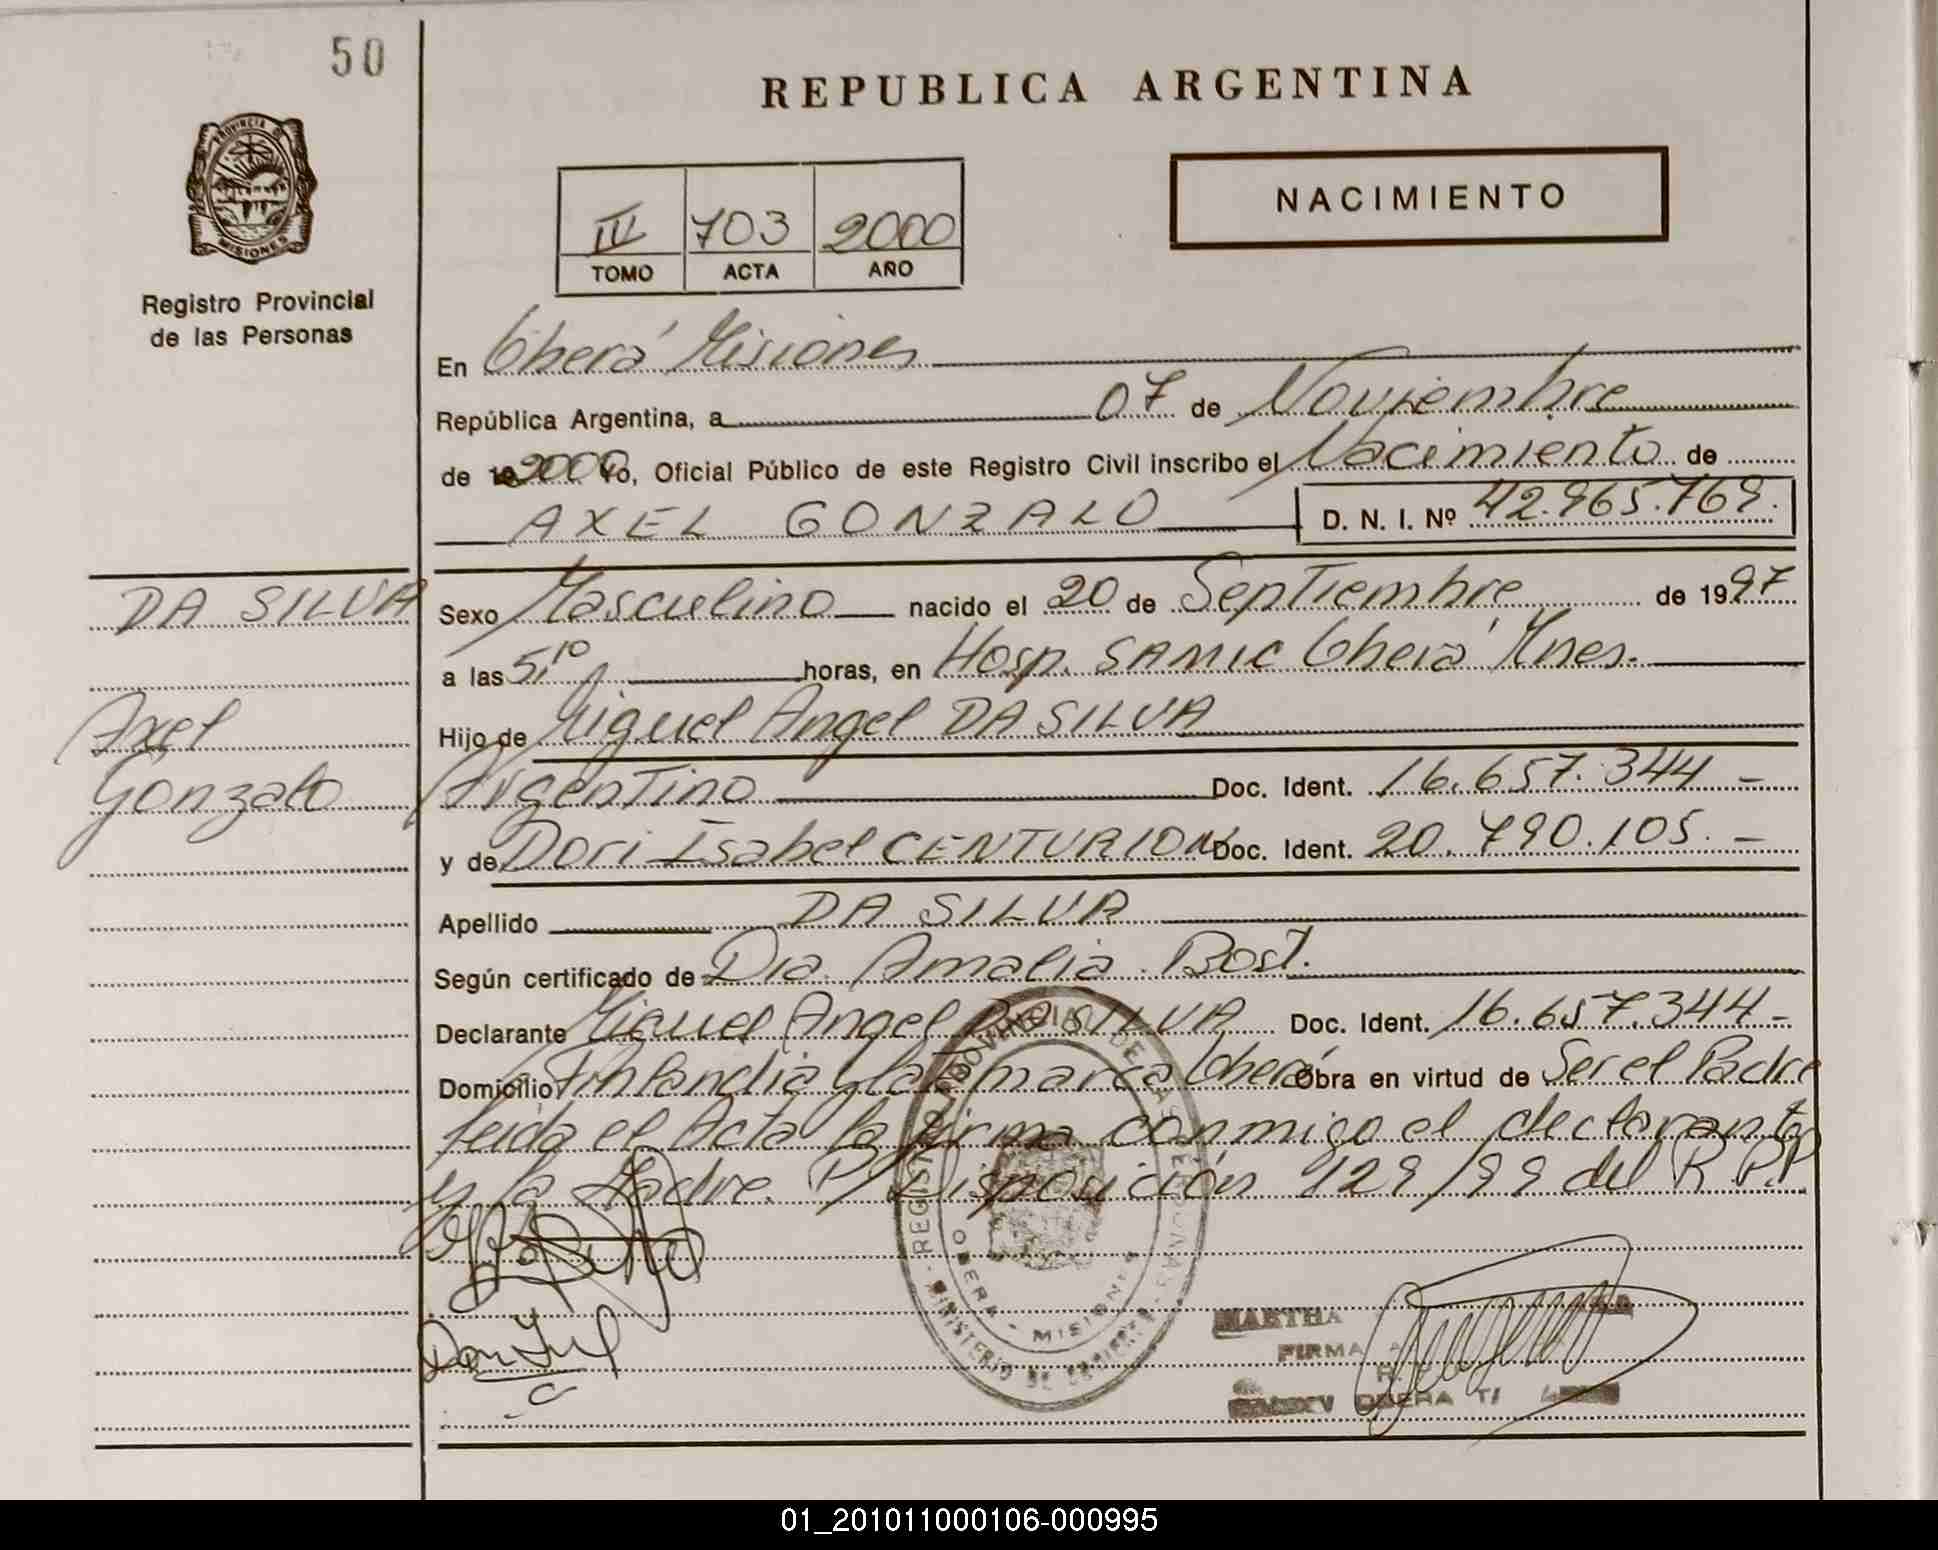 50
REPUBLICA ARGENTINA
PROVINCIA DE
MISIONES
Registro Provincial
de las Personas
IV 703 2000
TOMO ACTA AÑO
NACIMIENTO
En Oberá Misiones
República Argentina, a 07 de Noviembre
de 2000 Yo, Oficial Público de este Registro Civil inscribo el Nacimiento de
AXEL GONZALO D. N. I. Nº 42.965.769.
DA SILVA
Axel
Gonzalo
Sexo Masculino nacido el 20 de Septiembre de 1997
a las 5,10 horas, en Hosp. SAMIC Oberá Mnes.
Hijo de Miguel Angel DA SILVA
Argentino Doc. Ident. 16.657.344 -
y de Dori Isabel CENTURION Doc. Ident. 20.790.105. -
Apellido DA SILVA
Según certificado de Dra. Amalia Bost.
Declarante Miguel Angel DA SILVA Doc. Ident. 16.657.344 -
Domicilio Finlandia y Catamarca Oberá Obra en virtud de Ser el Padre
leida el Acta la firma conmigo el declarante
y la Madre. P/ Disposición 129/99 del R.P.P.
REGISTRO PROVINCIAL DE LAS PERSONAS
OBERA - MISIONES
MINISTERIO DE GOBIERNO
MARTHA
FIRMA
OBERA
01_201011000106-000995